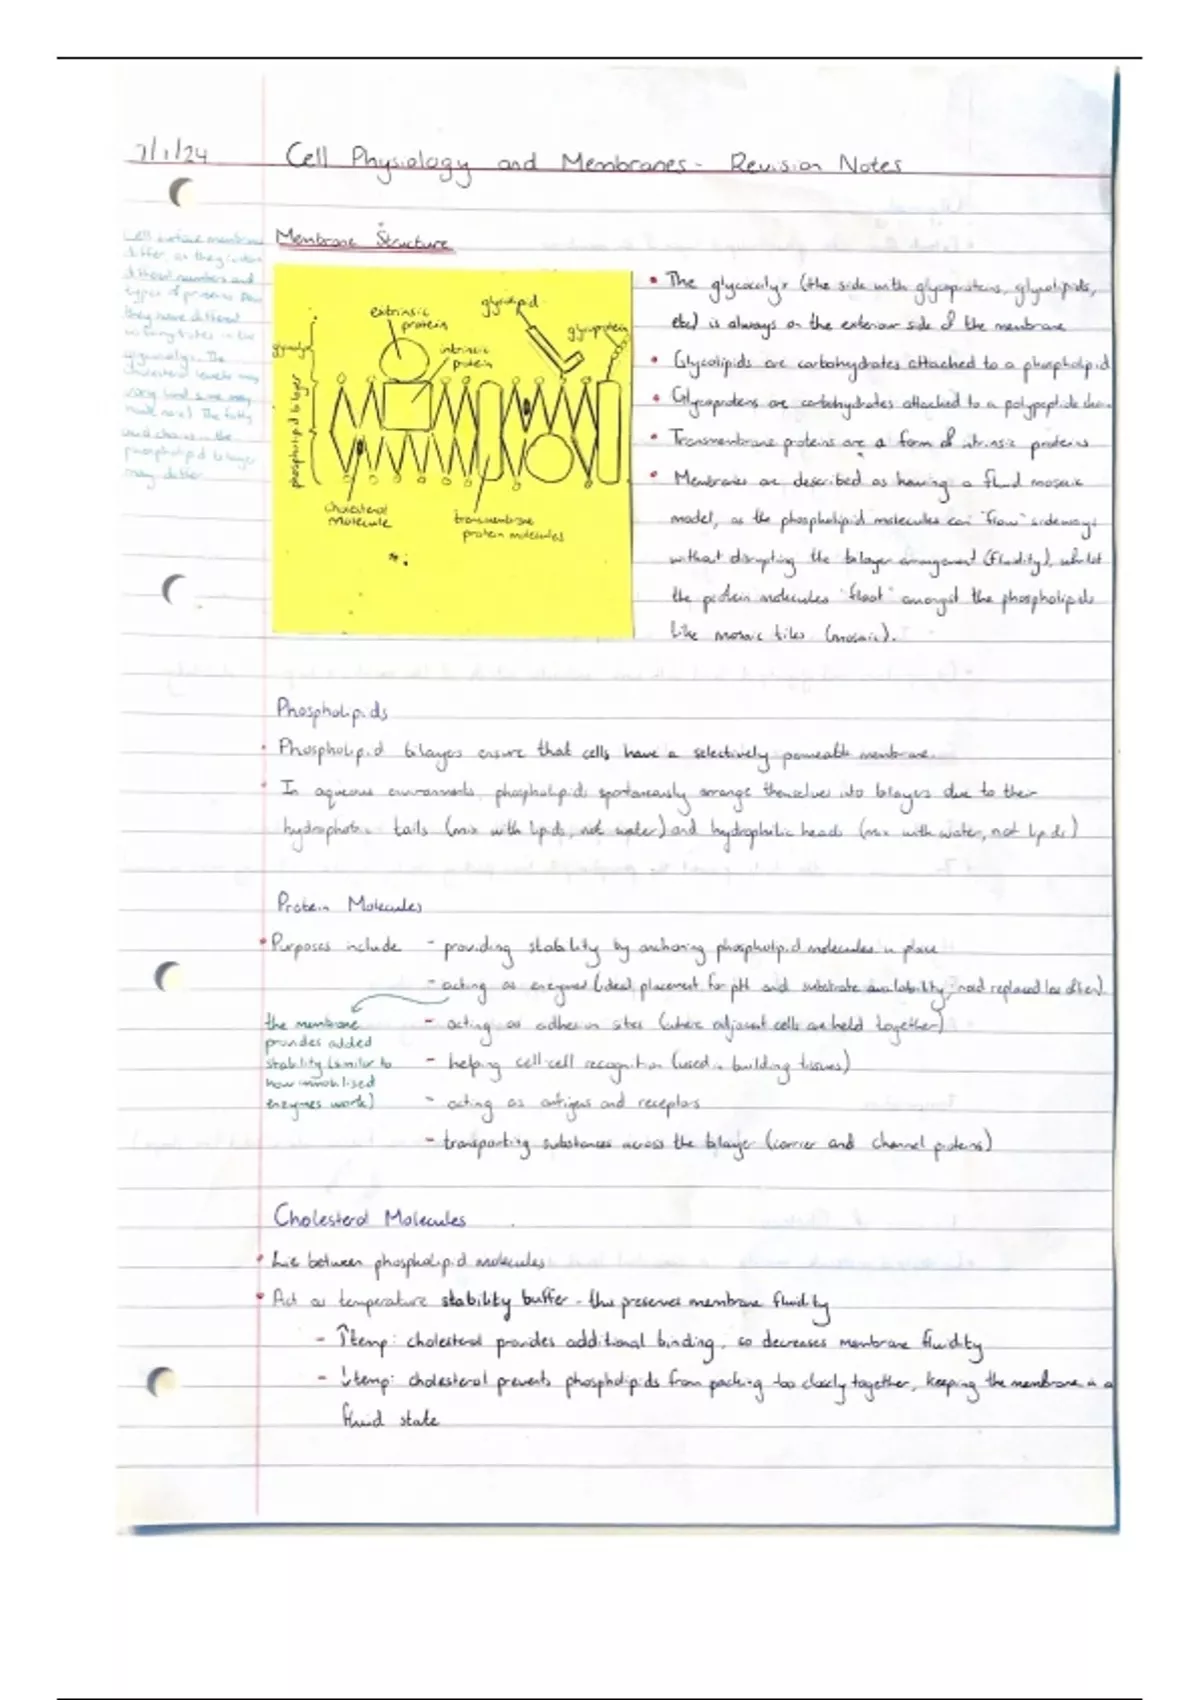 7/1/24 Cell Physiology and Membranes - Revision Notes
Cell surface membranes
differ, as they contain
different numbers and
types of proteins. Also
they have different
in the
glycocalyx. The
cholesterol levels may
vary (and some may
have none). The fatty
acid chains in the
phospholipid bilayer
may differ.
Membrane Structure
extrinsic
protein
glycolipid
glycoprotein
intrinsic
protein
glycocalyx
phospholipid bilayer
cholesterol
molecule
transmembrane
protein molecules
• The glycocalyx (the side with glycoproteins, glycolipids,
etc) is always on the exterior side of the membrane
• Glycolipids are carbohydrates attached to a phospholipid
• Glycoproteins are carbohydrates attached to a polypeptide
• Transmembrane proteins are a form of intrinsic proteins
• Membranes are described as having a fluid mosaic
model, as the phospholipid molecules can "flow" sideways
without disrupting the bilayer arrangement (fluidity), whilst
the protein molecules "float" amongst the phospholipids
like mosaic tiles (mosaic).
Phospholipids
• Phospholipid bilayers ensure that cells have a selectively permeable membrane.
• In aqueous environments, phospholipids spontaneously arrange themselves into bilayers due to their
hydrophobic tails (mix with lipids, not water) and hydrophilic heads (mix with water, not lipids)
Protein Molecules
• Purposes include - providing stability by anchoring phospholipid molecules in place
- acting as enzymes (ideal placement for pH and substrate availability, need replaced less often)
- acting as adhesion sites (where adjacent cells are held together)
- helping cell-cell recognition (used in building tissues)
- acting as antigens and receptors
- transporting substances across the bilayer (carrier and channel proteins)
the membrane
provides added
stability (similar to
how immobilised
enzymes work)
Cholesterol Molecules
• Lie between phospholipid molecules
• Act as temperature stability buffer - thus preserves membrane fluidity
- ↑temp: cholesterol provides additional binding, so decreases membrane fluidity
- ↓temp: cholesterol prevents phospholipids from packing too closely together, keeping the membrane in a
fluid state